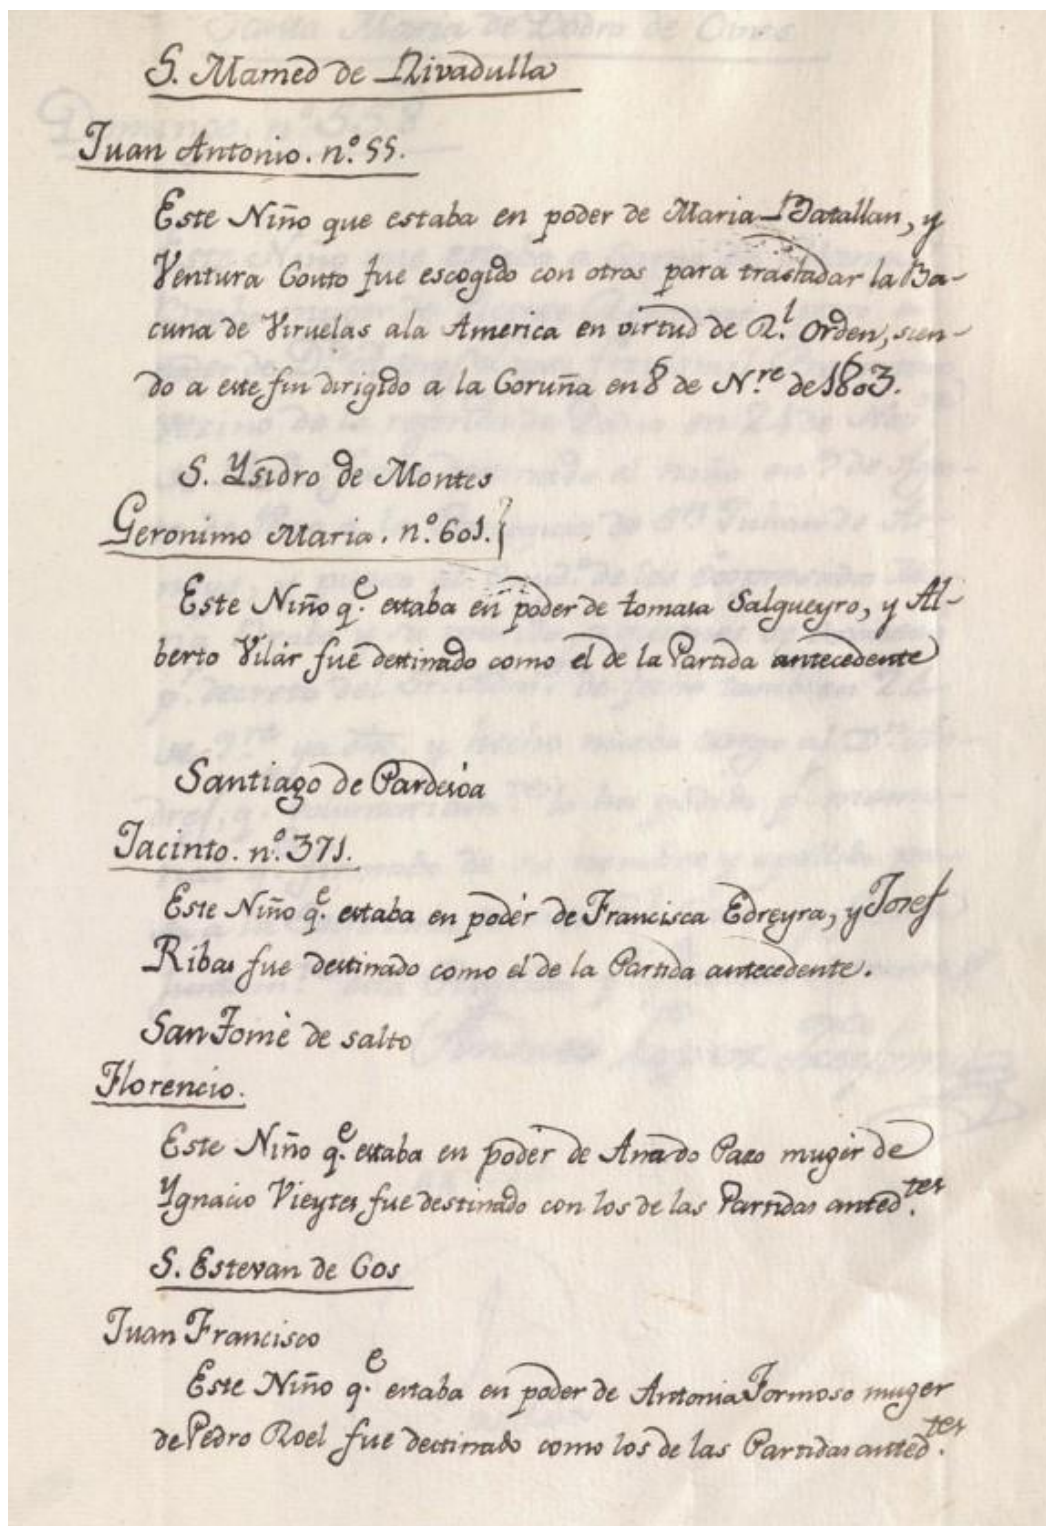 S. Mamed de Rivadulla
Juan Antonio. nº. 55.
Este Niño que estaba en poder de Maria Batallan, y
Ventura Couto fue escogido con otros para trasladar la Ba-
cuna de Viruelas ala America en virtud de R.l Orden, sien-
do a este fin dirigido a la Coruña en 8 de N.re de 1803.
S. Ysidro de Montes
Geronimo Maria. nº. 601.
Este Niño q.e estaba en poder de tomasa Salgueyro, y Al-
berto Vilár fue destinado como el de la Partida antecedente
Santiago de Pardesóa
Jacinto. nº. 371.
Este Niño q.e estaba en poder de Francisca Edreyra, y Josef
Ribas fue destinado como el de la Partida antecedente.
San Tomè de salto
Florencio.
Este Niño q.e estaba en poder de Ana do Pazo muger de
Ygnacio Vieytes fue destinado con los de las Partidas anted.tes
S. Estevan de Cos
Juan Francisco
Este Niño q.e estaba en poder de Antonia Formoso muger
de Pedro Roel fue destinado como los de las Partidas anted.tes